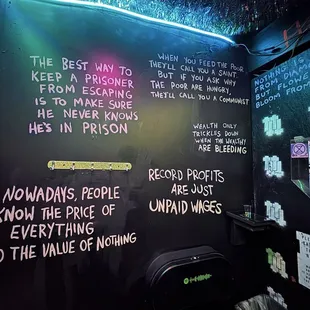 THE BEST WAY TO
KEEP A PRISONER
FROM ESCAPING
IS TO MAKE SURE
HE NEVER KNOWS
HE'S IN PRISON
WHEN YOU FEED THE POOR
THEY'LL CALL YOU A SAINT.
BUT IF YOU ASK WHY
THE POOR ARE HUNGRY,
THEY'LL CALL YOU A COMMUNIST
WEALTH ONLY
TRICKLES DOWN
WHEN THE WEALTHY
ARE BLEEDING
NOWADAYS, PEOPLE
KNOW THE PRICE OF
EVERYTHING
THE VALUE OF NOTHING
RECORD PROFITS
ARE JUST
UNPAID WAGES
NOTHING IS
FROM
BUT
BLOOM FROM